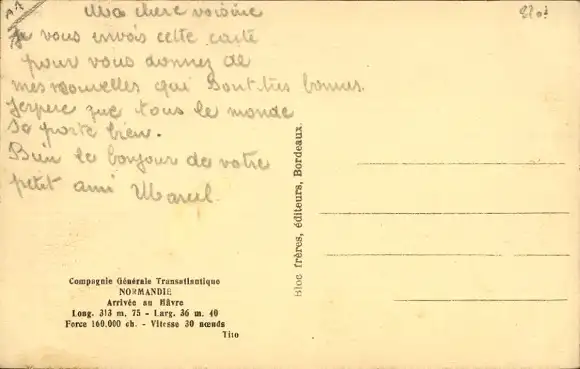 Ma chere voisine
Je vous envois cette carte
pour vous donnez de
mes nouvelles qui sont tres bonnes.
J'espere que tous le monde
se porte bien.
Bien le bonjour de votre
petit ami Marcel
Compagnie Générale Transatlantique
NORMANDIE
Arrivée au Hâvre
Long. 313 m. 75 - Larg. 36 m. 40
Force 160.000 ch. - Vitesse 30 nœuds
Tito
Bloc frères, éditeurs, Bordeaux.